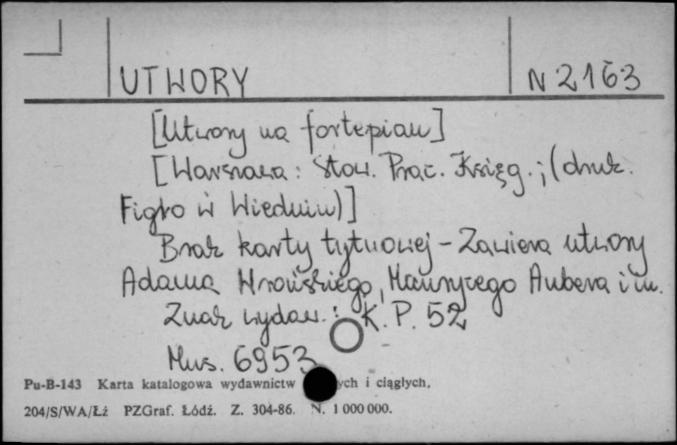 UTWORY N 2163
[Utwory na fortepian]
[Warszawa : Stow. Prac. Księg. ; (druk.
Figro w Wiedniu)]
Brak karty tytułowej - Zawiera utwory
Adama Wrońskiego, Maurycego Aubera i in.
Znak wydaw. : K. P. 52
Mus. 6953
Pu-B-143 Karta katalogowa wydawnictw ych i ciągłych.
204/S/WA/Łż PZGraf. Łódź. Z. 304-86. N. 1 000 000.